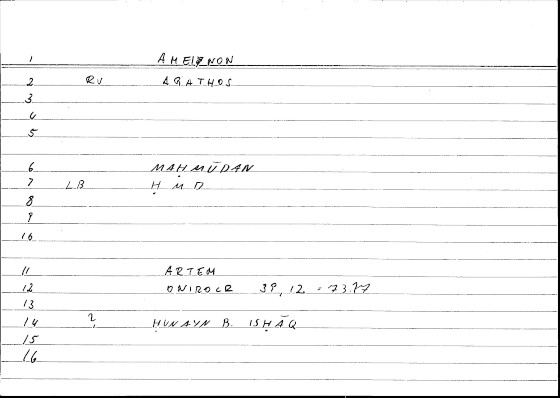 1 AMEINON
2 RV AGATHOS
3
4
5
6 MAḤMŪDAN
7 LB ḤMD
8
9
10
11 ARTEM
12 ONIROCR 39,12 = 73,17
13
14 ? ḤUNAYN B. ISḤĀQ
15
16